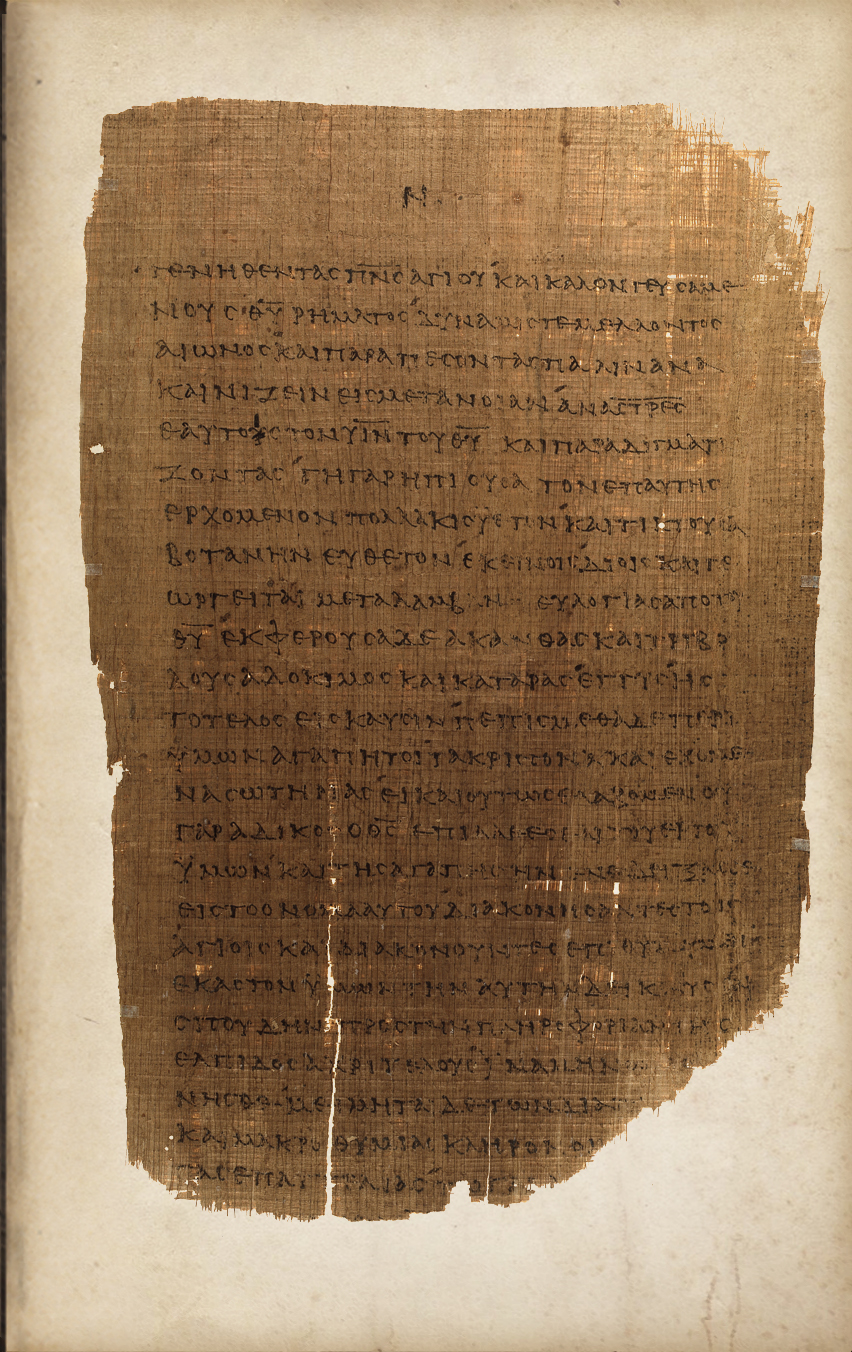 Ν
ΓΕΝΗΘΕΝΤΑΣ Π̅Ν̅Σ̅ ΑΓΙΟΥ ΚΑΙ ΚΑΛΟΝ ΓΕΥΣΑΜΕ
ΝΟΥΣ Θ̅Υ̅ ΡΗΜΑΤΟΣ ΔΥΝΑΜΙΣ ΤΕ ΜΕΛΛΟΝΤΟΣ
ΑΙΩΝΟΣ ΚΑΙ ΠΑΡΑΠΕΣΟΝΤΑΣ ΠΑΛΙΝ ΑΝΑ
ΚΑΙΝΙΖΕΙΝ ΕΙΣ ΜΕΤΑΝΟΙΑΝ ΑΝΑΣ̅Τ̅Ρ̅Ε̅Σ̅
ΕΑΥΤΟΥΣ ΤΟΝ Υ̅Ι̅Ν̅ ΤΟΥ Θ̅Υ̅ ΚΑΙ ΠΑΡΑΔΙΓΜΑΤΙ
ΖΟΝΤΑΣ ΓΗ ΓΑΡ Η ΠΙΟΥΣΑ ΤΟΝ ΕΠ ΑΥΤΗΣ
ΕΡΧΟΜΕΝΟΝ ΠΟΛΛΑΚΙΣ ΥΕΤΟΝ ΚΑΙ ΤΙΚΤΟΥΣΑ
ΒΟΤΑΝΗΝ ΕΥΘΕΤΟΝ ΕΚΕΙΝΟΙΣ ΔΙ ΟΙΣ ΚΑΙ ΓΕ
ΩΡΓΕΙΤΑΙ ΕΥΛΟΓΙΑΣ ΑΠΟ ΤΟΥ
Θ̅Υ̅ ΕΚΦΕΡΟΥΣΑ ΔΕ ΑΚΑΝΘΑΣ ΚΑΙ ΤΡΙΒΟ
ΛΟΥΣ ΑΔΟΚΙΜΟΣ ΚΑΙ ΚΑΤΑΡΑΣ ΕΓΓΥΣ ΗΣ
ΤΟ ΤΕΛΟΣ ΕΙΣ ΚΑΥΣΙΝ ΠΕΠΙΣΜΕΘΑ ΔΕ ΠΕΡΙ
ΥΜΩΝ ΑΓΑΠΗΤΟΙ ΤΑ ΚΡΙΣΣΟΝΑ ΚΑΙ ΕΧΟΜΕ
ΝΑ ΣΩΤΗΡΙΑΣ ΕΙ ΚΑΙ ΟΥΤΩΣ ΛΑΛΟΥΜΕΝ ΟΥ
ΓΑΡ ΑΔΙΚΟΣ Ο Θ̅Σ̅
ΥΜΩΝ ΚΑΙ ΤΗΣ ΑΓΑΠΗΣ ΗΝ
ΕΙΣ ΤΟ ΟΝΟΜΑ ΑΥΤΟΥ ΔΙΑΚΟΝΗΣΑΝΤΕΣ ΤΟΙΣ
ΑΓΙΟΙΣ ΚΑΙ ΔΙΑΚΟΝΟΥΝΤΕΣ
ΕΚΑΣΤΟΝ ΥΜΩΝ ΤΗΝ ΑΥΤΗΝ
ΠΡΟΣ ΤΗΝ ΠΛΗΡΟΦΟΡΙΑΝ ΤΗΣ
ΕΛΠΙΔΟΣ ΑΧΡΙ ΤΕΛΟΥΣ ΙΝΑ ΜΗ
ΝΗΣΘΕ ΜΕΙΜΗΤΑΙ ΔΕ ΤΩΝ ΔΙΑ
ΚΑΙ ΜΑΚΡΟΘΥΜΙΑΣ ΚΛΗΡΟΝΟΜ
ΤΑΣ ΕΠΑΓΓΕΛΙΑΣ